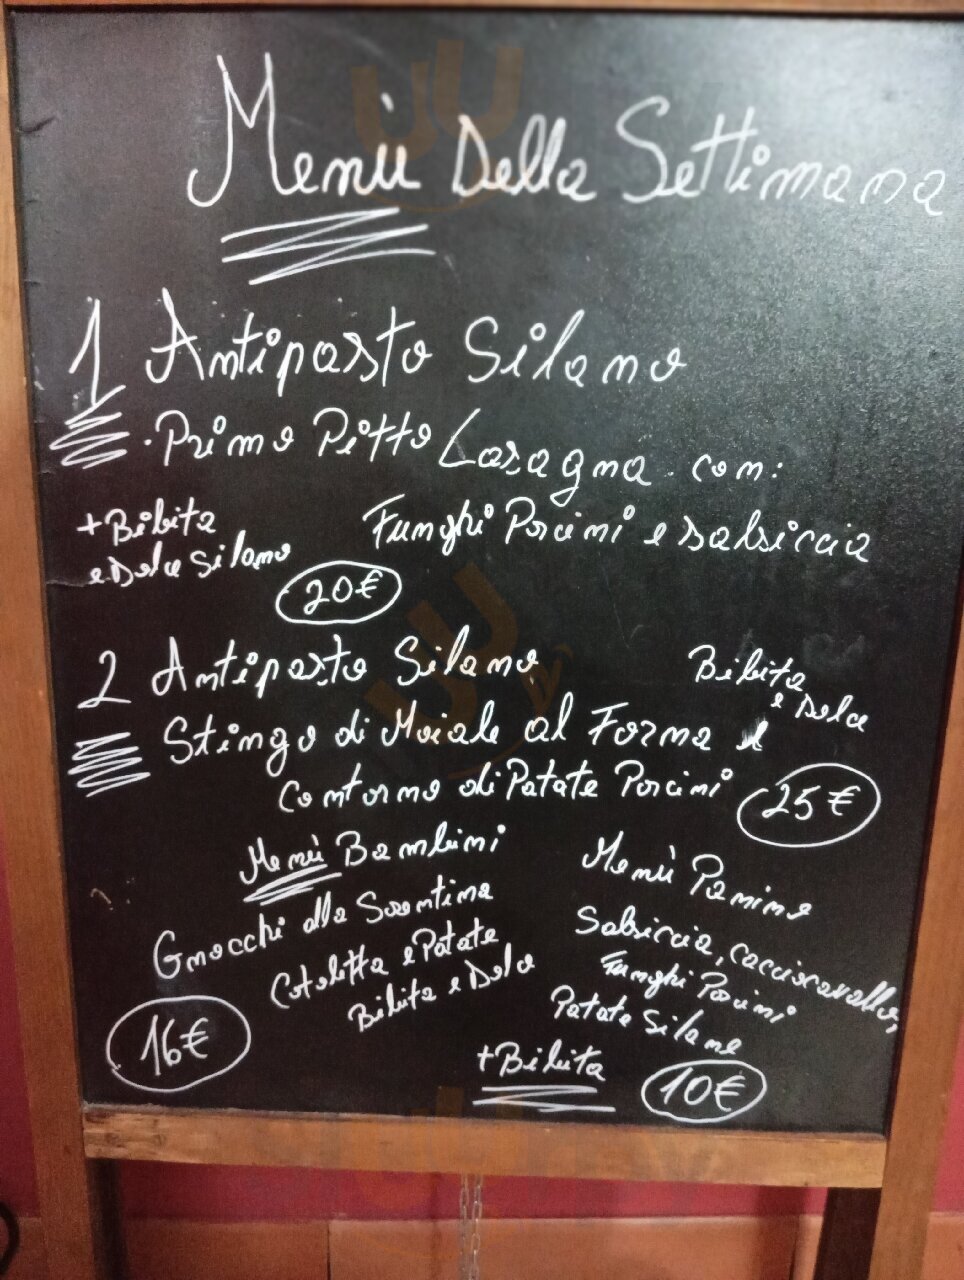 Menù Della Settimana
1 Antipasto Silano
• Primo Pitto Lasagna con:
Funghi Porcini e salsiccia
+ Bibita
e Dolce Silano
20€
2 Antipasto Silano
Bibita
e Dolce
Stingo di Maiale al Forma e
contorno di Patate Porcini
25€
Menù Bambini
Gnocchi alla Sorentina
Cotoletta e Patate
Bibita e Dolce
16€
Menù Panino
Salsiccia, caciocavallo,
Funghi Porcini
Patate Silane
+ Bibita
10€